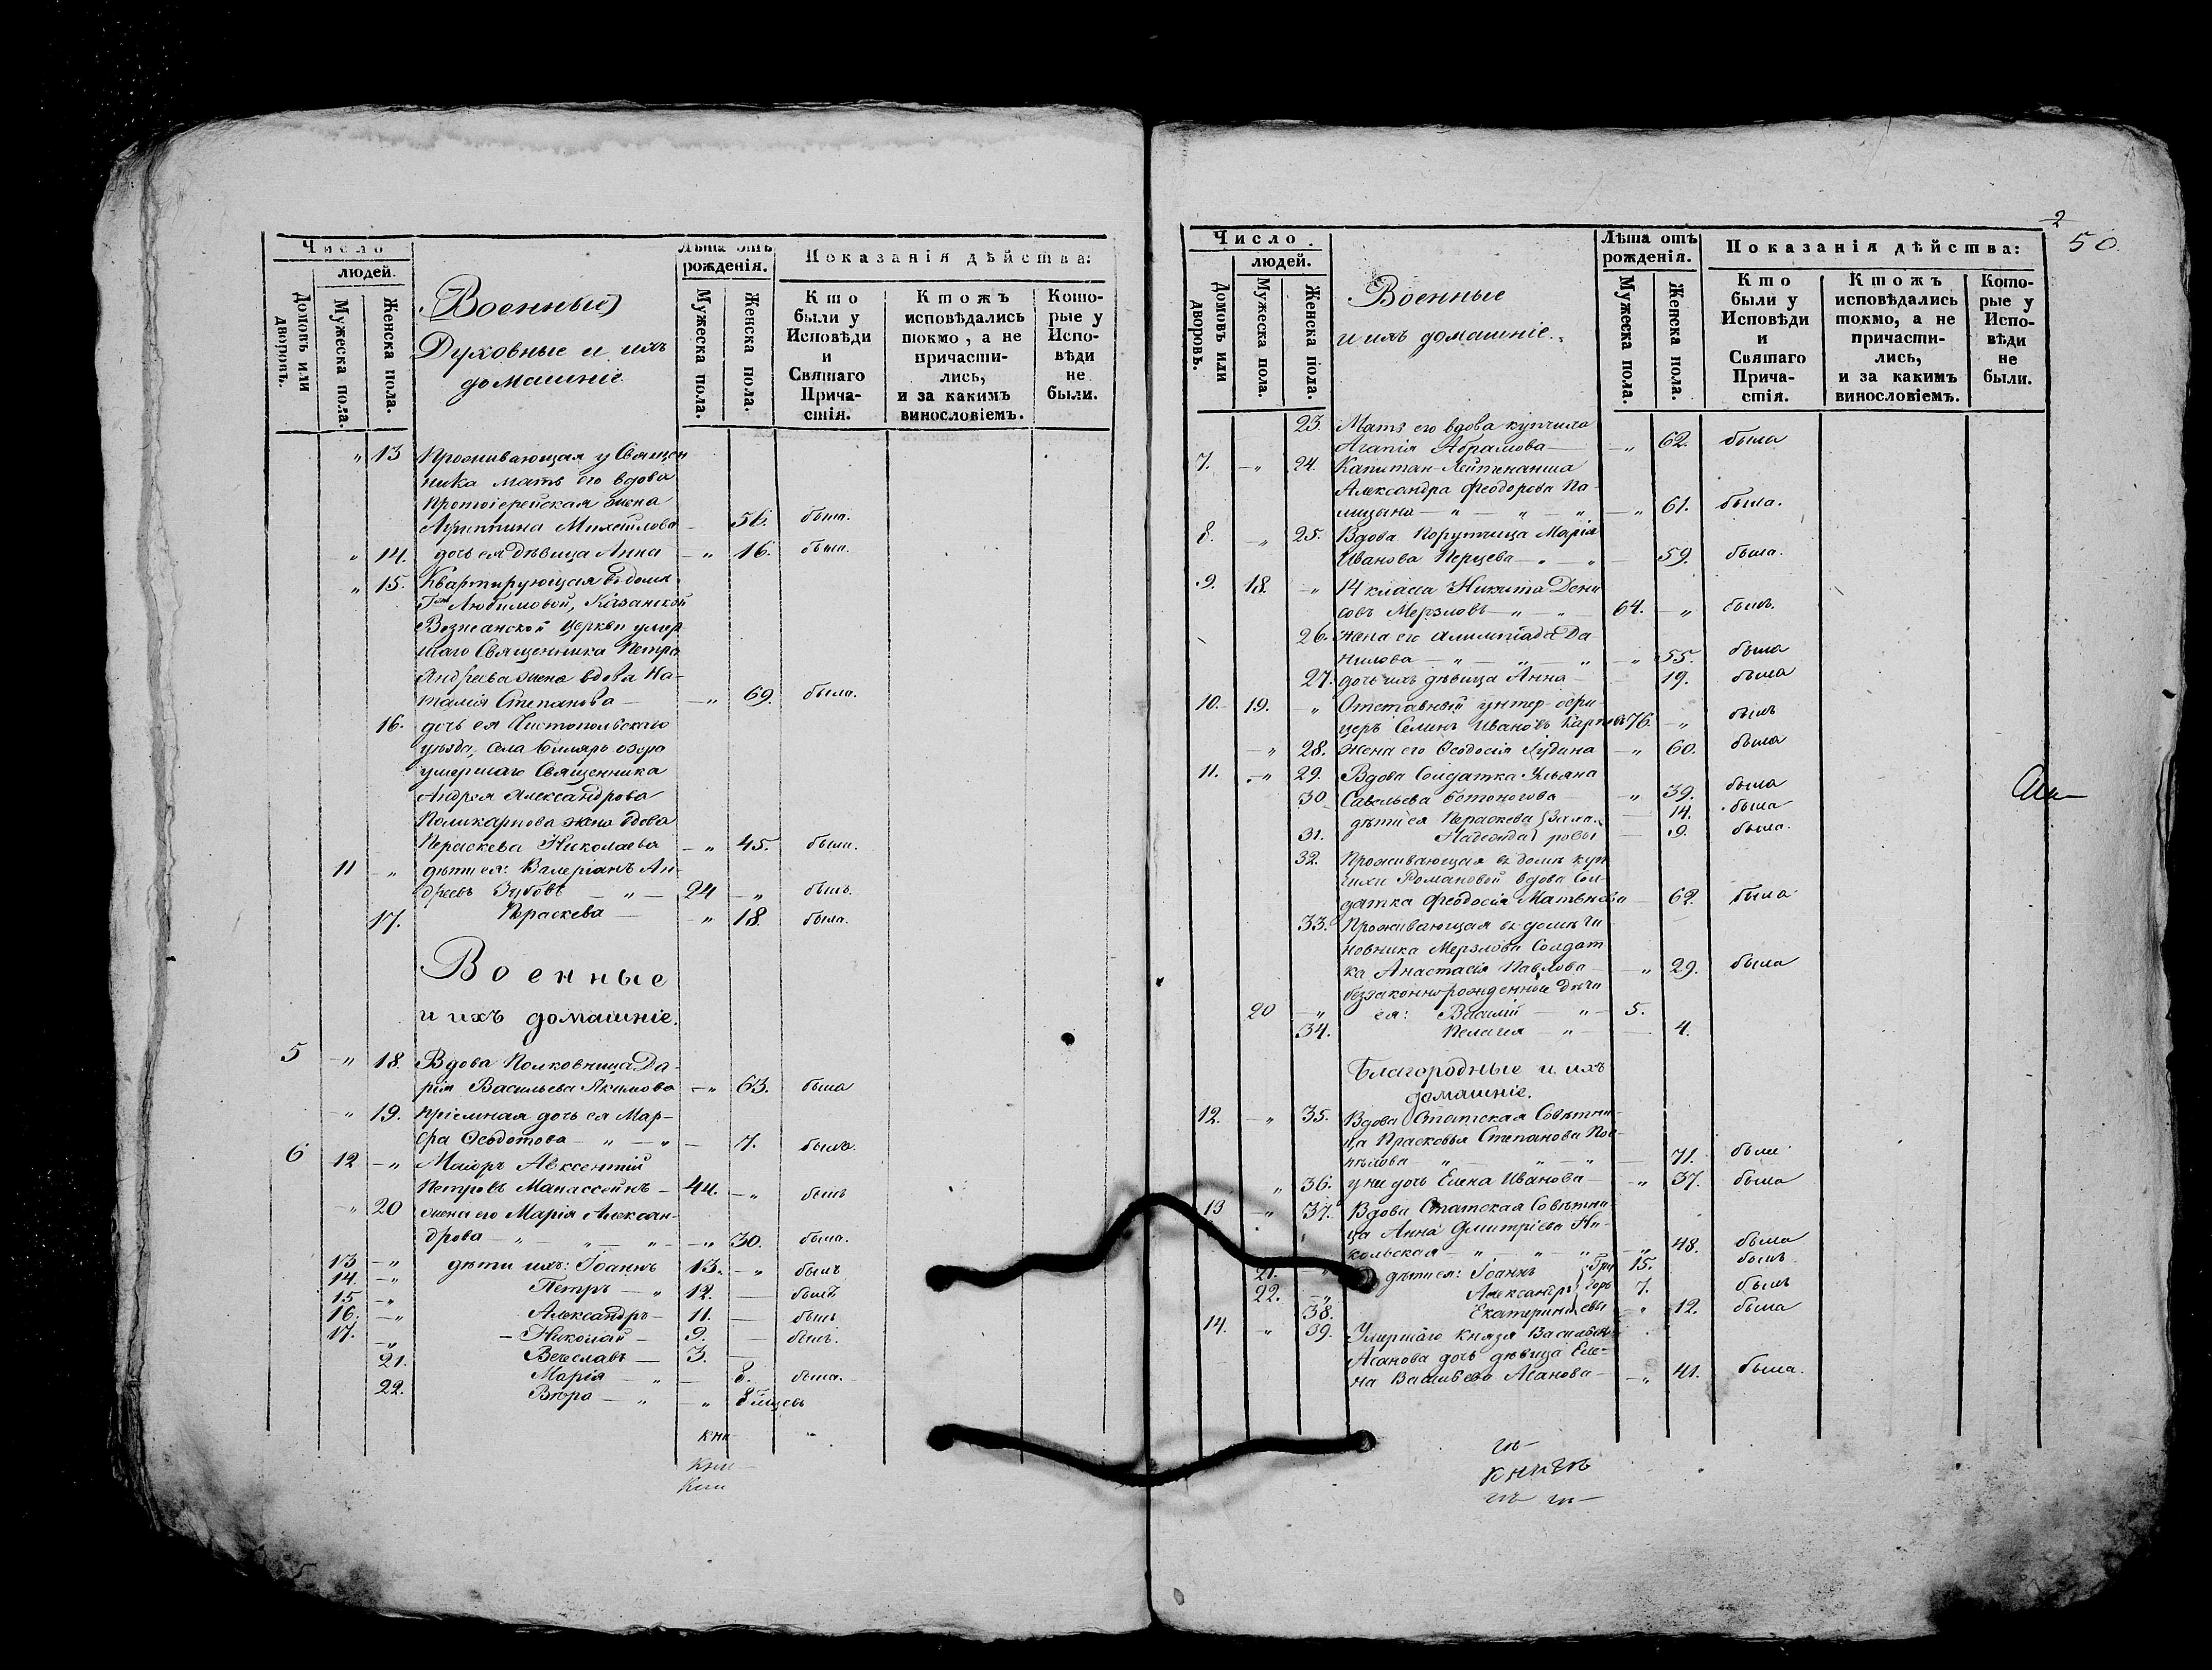 Число
людей.
Домовъ или дворовъ.
Мужеска пола.
Женска пола.
Военные
Духовные и ихъ
домашніе
Лѣта отъ
рожденія.
Мужеска пола.
Женска пола.
Показанія дѣйства:
Кто были у Исповѣди и Святаго Прича-стія.
Ктожъ исповѣдались токмо, а не причасти-лись, и за какимъ винословіемъ.
Кото-рые у Испо-вѣди не были.
" 13 Проживающая у Священ
ника мать его вдова
Протоіерейская жена
Михеилова — 56. была.
" 14. дочь ея дѣвица Анна — " 16. была.
" 15. Квартирующая въ домѣ
Любимовой, Казанской
Вознесенской церкви умер
шаго Священника Петра
Андреева жена вдова На-
талія Степанова — — " 69. была.
16. дочь ея Чистопольскаго
уѣзда, села Биляръ озера
умершаго Священника
Андрея Александрова
Поликарпова жена вдова
Параскева Николаева — " 45. была.
11 — " дѣти ея: Валеріанъ Ан-
дреевъ Зубовъ — " — 24 — " былъ.
17. Параскева — " 18. была.
Военные
и ихъ домашніе.
5 — " 18. Вдова Полковница Да-
рія Васильева Якимова — " 63. была
— " 19. Пріемная дочь ея Мар-
ѳа Ѳеодотова — " — " — 7. была.
6 12 — " Маіоръ Авксентій
Петровъ Манассеинъ — 44. — " былъ
— " 20 жена его Марія Алексан-
дрова — " — " — " — " 30. была.
13 — " дѣти ихъ: Іоаннъ 13. — " былъ
14. — " Петръ — " 12. — былъ
15 — " Александръ — 11. — былъ
16. — " — Николай — 9. — былъ.
17. — " Вечеславъ — 3. —
21. Марія — " — 8. была.
22. Вѣра — " — " 8 мцевъ
2
50.
Число
людей.
Домовъ или дворовъ.
Мужеска пола.
Женска пола.
Военные
и ихъ домашніе.
Лѣта отъ
рожденія.
Мужеска пола.
Женска пола.
Показанія дѣйства:
Кто были у Исповѣди и Святаго Прича-стія.
Ктожъ исповѣдались токмо, а не причасти-лись, и за какимъ винословіемъ.
Кото-рые у Испо-вѣди не были.
23. Мать его вдова купчиха
Агапія Абрамова — — " 62. была
7. — " 24. Капитан-Лейтенанша
Александра Феодорова Па-
лицына — " — " — " — " 61. была.
8. — " 25. Вдова Порутчица Марія
Иванова Перцева — " — " — 59. была.
9. 18. — " 14 класса Никита Дени
совъ Мерзловъ — " — " 64. — " былъ.
26. жена его Алимпіада Да-
нилова — " — " — " — " 55. была
27. дочь ихъ дѣвица Анна — — 19. была
10. 19. " Отставный унтер-офи-
церъ Семенъ Ивановъ 76. — " былъ
— " 28. Жена его Ѳеодосія Юдина — " 60. была
11. — " 29. Вдова Солдатка Ульяна
Савельева — " 39. была
30 дѣти ея Параскева — 14. была
31. Надежда — 9. была.
32. Проживающая въ домѣ куп
чихи Романовой вдова Сол-
датка Феодосія — 62. была
33. Проживающая въ домѣ чи
новника Мерзлова Солдат
ка Анастасія Павлова — — " 29. была
беззаконнорожденные дѣти
20 — " ея: Василій — " — 5.
34. Пелагея — " — — 4.
Благородные и ихъ
домашніе.
12. — " 35. Вдова Статская Совѣтни-
ца Прасковья Степанова
— " — " — " — 71. была
" 36. у ней дочь Елена Иванова — " 37. была
13 — " 37. Вдова Статская Совѣтни-
ца Анна Дмитріева Ни-
кольская — " — " — " — " 48. была
21. — " дѣти ея: Іоаннъ Гри 15. былъ
22. — " Александръ горь 7. былъ
38. Екатерина евы — " 12. была
14. " 39. Умершаго Князя
Асанова дочь дѣвица Еле-
на Васильева Асанова — — " 41. была.